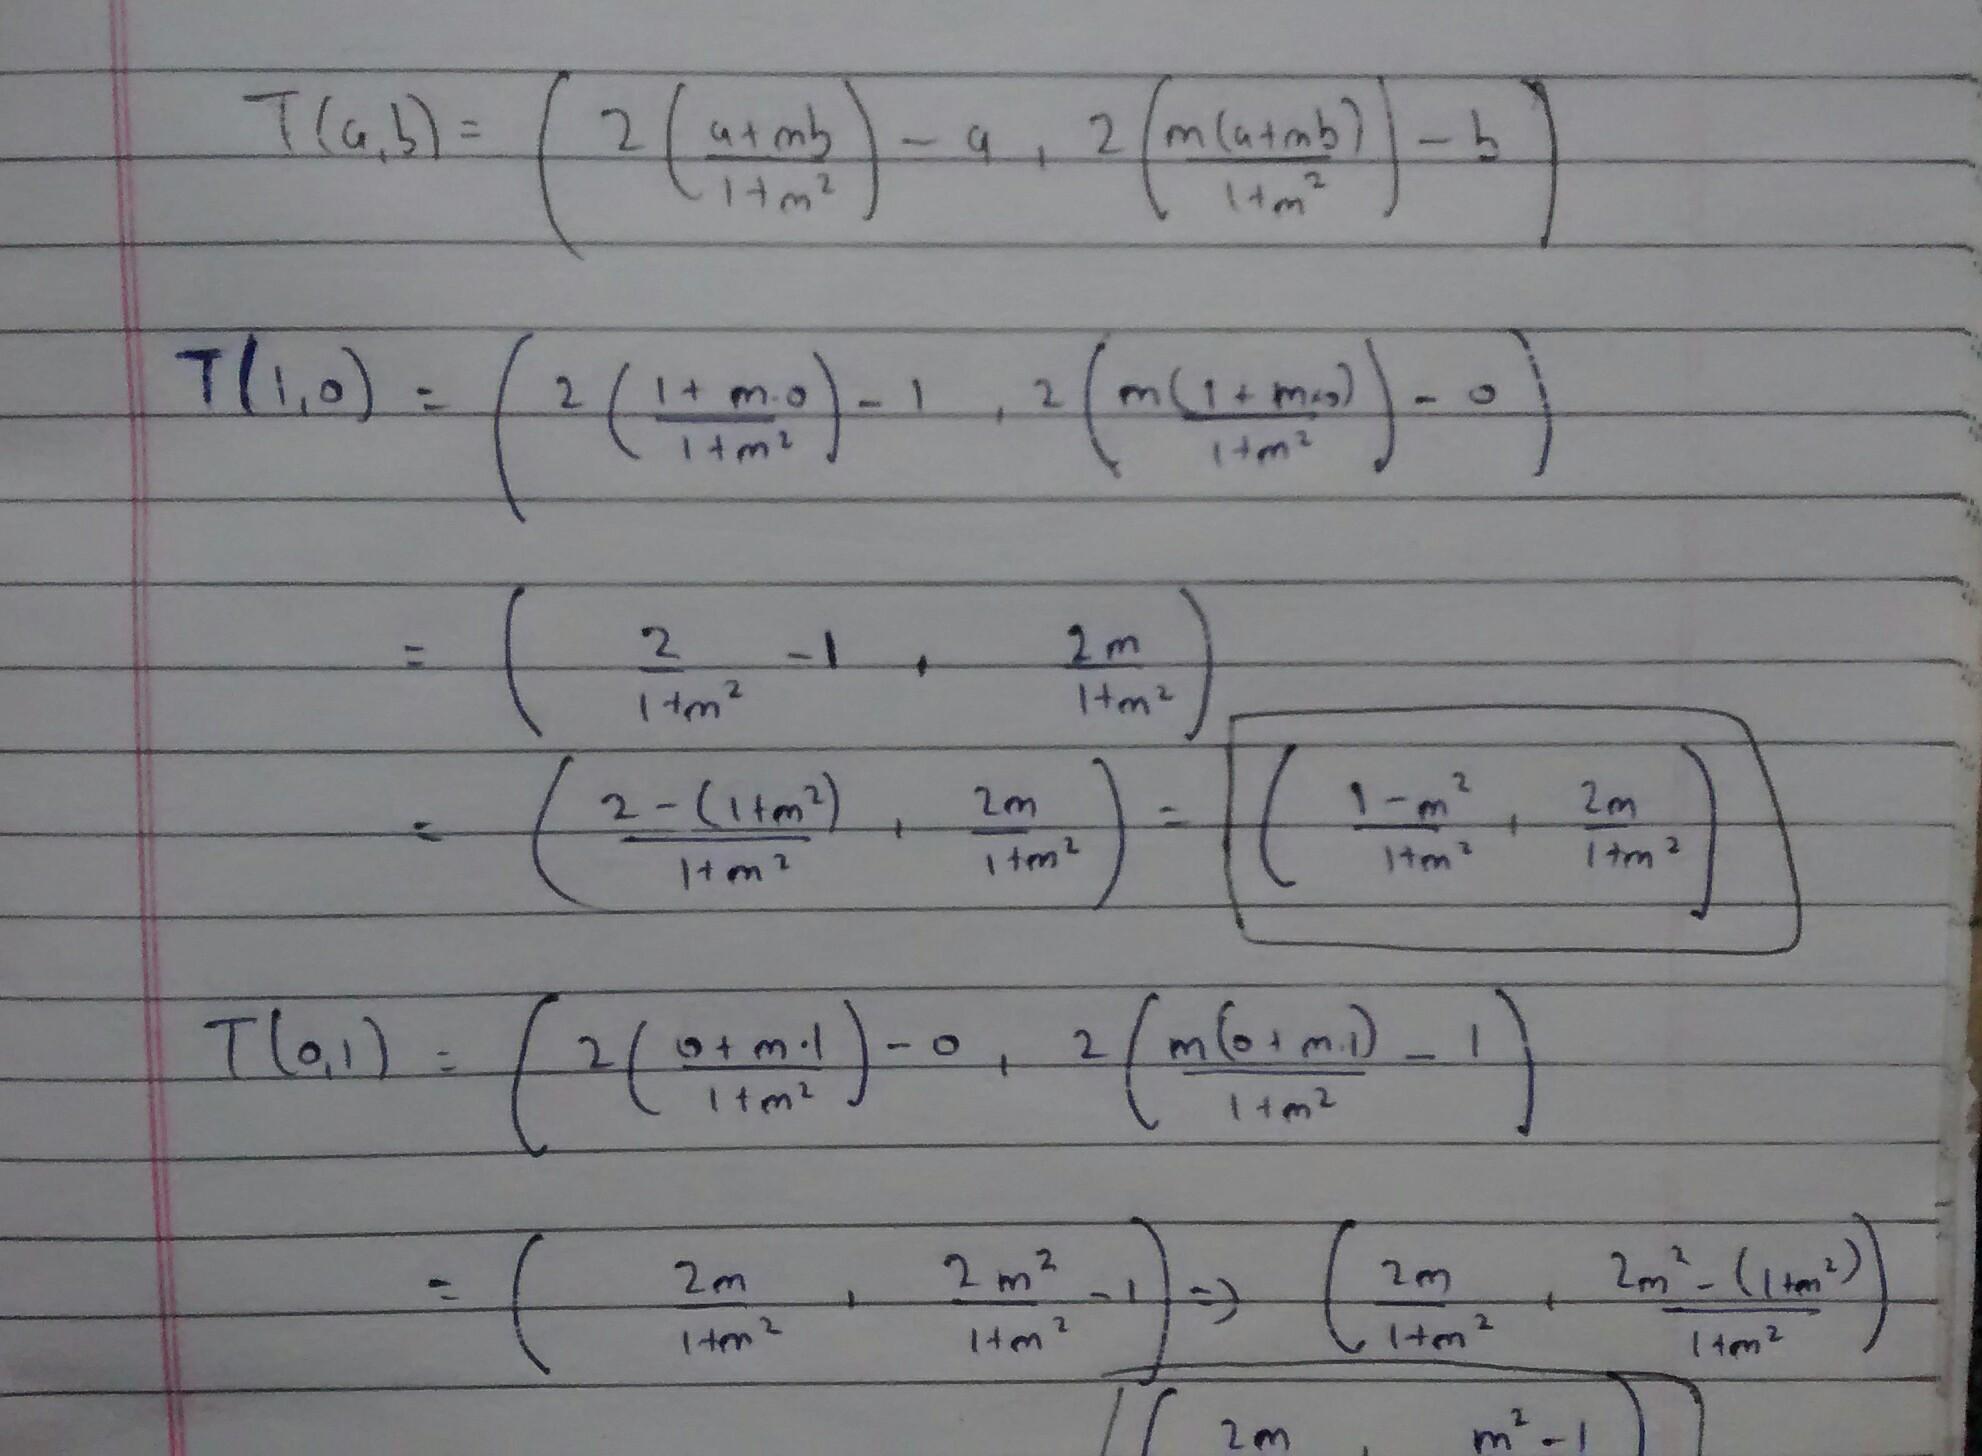 T(a,b) = ( 2 ( (a+mb)/(1+m²) ) - a , 2 ( (m(a+mb))/(1+m²) ) - b )
T(1,0) = ( 2 ( (1+m·0)/(1+m²) ) - 1 , 2 ( (m(1+m·0))/(1+m²) ) - 0 )
= ( 2/(1+m²) - 1 , 2m/(1+m²) )
= ( (2-(1+m²))/(1+m²) , 2m/(1+m²) ) = ( (1-m²)/(1+m²) , 2m/(1+m²) )
T(0,1) = ( 2 ( (0+m·1)/(1+m²) ) - 0 , 2 ( (m(0+m·1))/(1+m²) - 1 )
= ( 2m/(1+m²) , 2m²/(1+m²) - 1 ) => ( 2m/(1+m²) , (2m²-(1+m²))/(1+m²) )
( 2m , m²-1 )